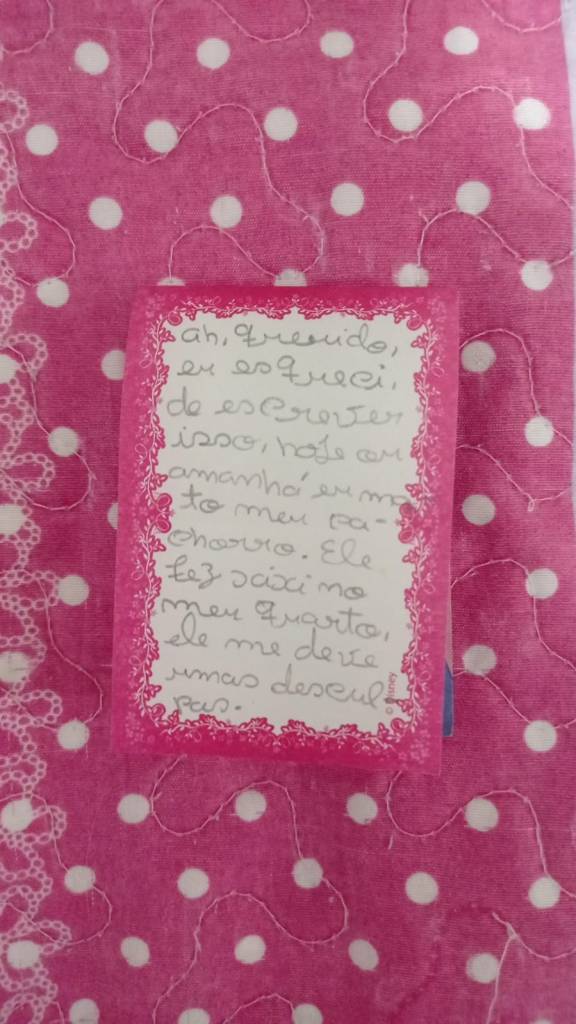 ah, querido,
eu esqueci,
de escrever
isso, hoje ou
amanhá eu ma
to meu ca-
chorro. Ele
fez xixi no
meu quarto,
ele me deve
umas descul
pas.
© Disney